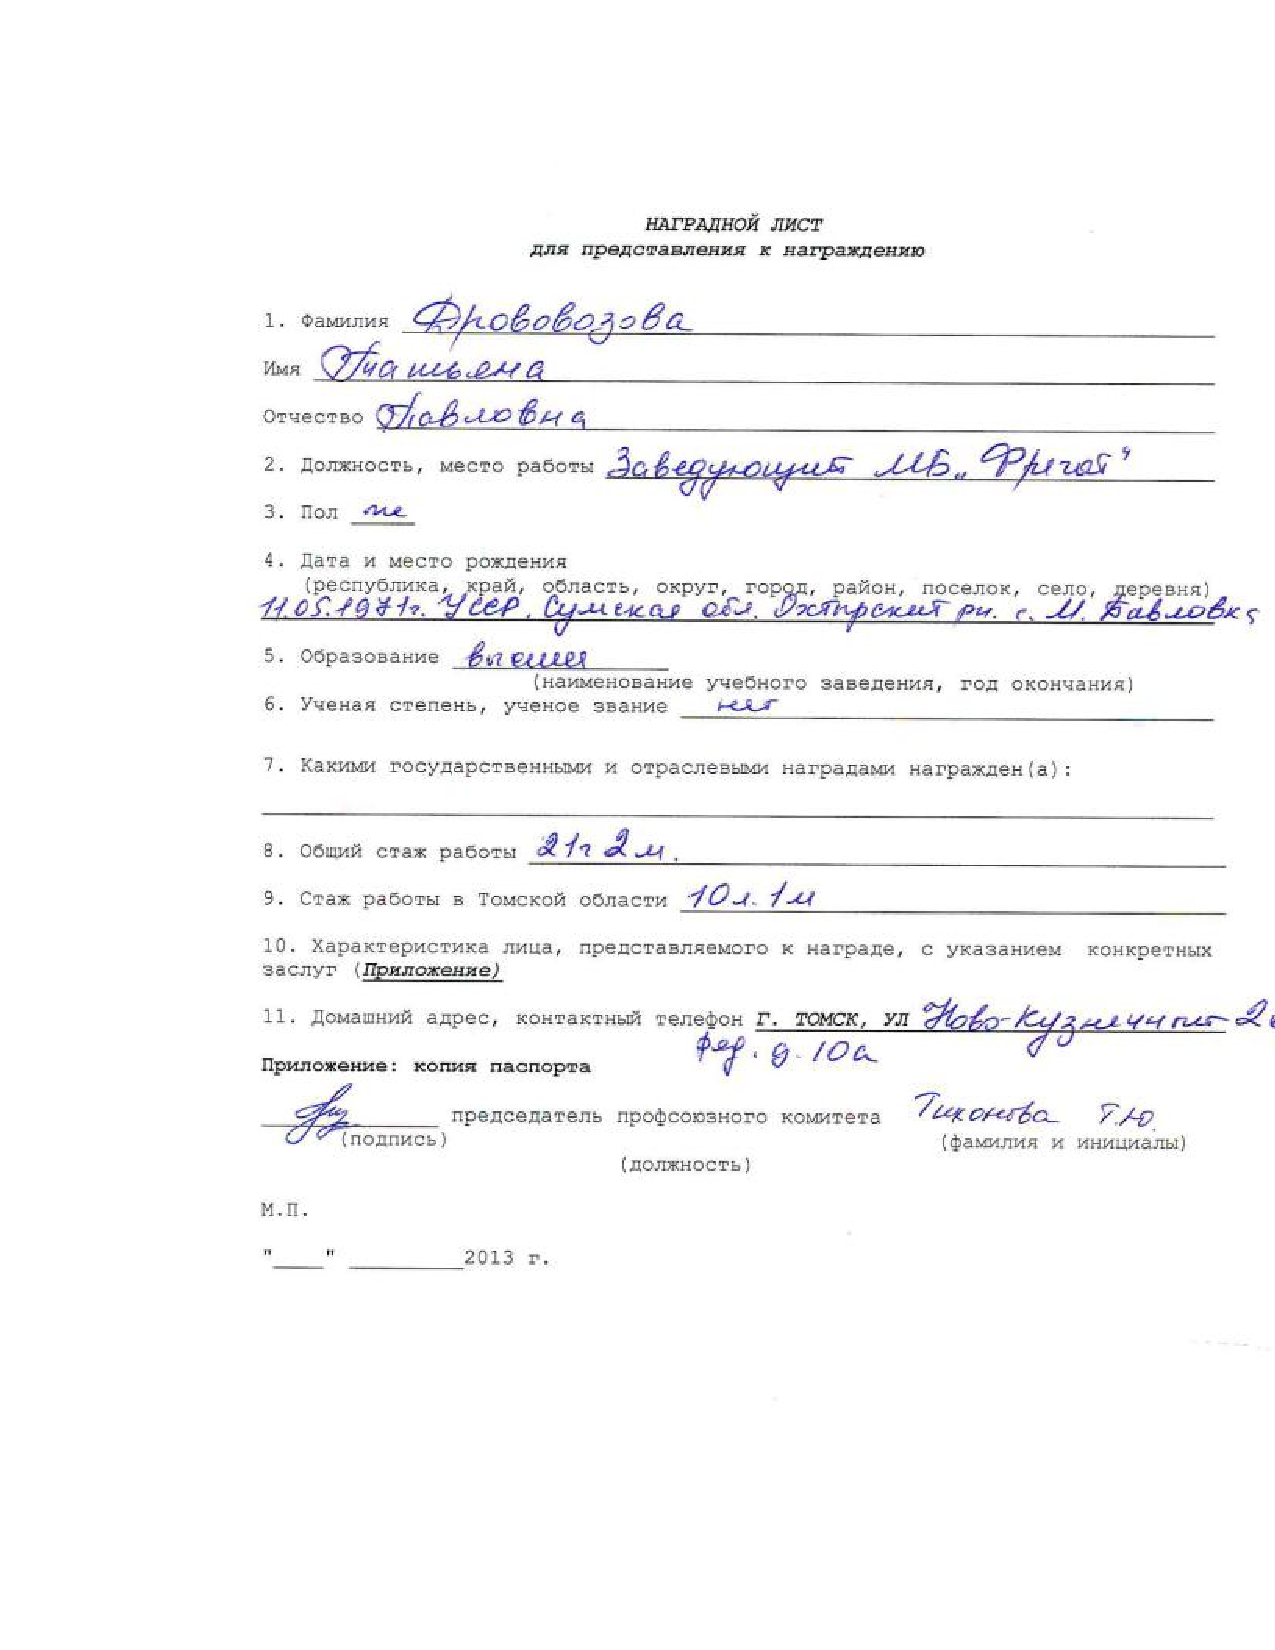 НАГРАДНОЙ ЛИСТ
для представления к награждению
1. Фамилия Дрововозова
Имя Татьяна
Отчество Павловна
2. Должность, место работы Заведующий МБ „Фрегат"
3. Пол же
4. Дата и место рождения
(республика, край, область, округ, город, район, поселок, село, деревня)
11.05.1971г. УССР. Сумская обл. Охтырский рн. с. М. Павловка
5. Образование высшее
(наименование учебного заведения, год окончания)
6. Ученая степень, ученое звание нет
7. Какими государственными и отраслевыми наградами награжден(а):
8. Общий стаж работы 21г 2м.
9. Стаж работы в Томской области 10л. 1м
10. Характеристика лица, представляемого к награде, с указанием конкретных
заслуг (Приложение)
11. Домашний адрес, контактный телефон Г. ТОМСК, УЛ Ново-Кузнечный 2й
д. 10а
Приложение: копия паспорта
председатель профсоюзного комитета Тихонова Т.Ю.
(подпись) (фамилия и инициалы)
(должность)
М.П.
"____" _________2013 г.